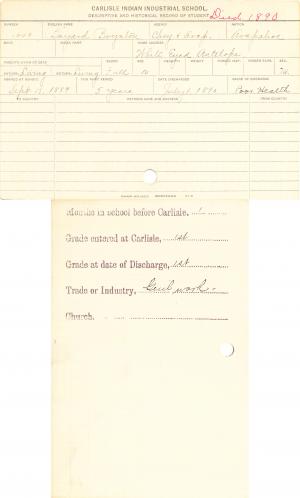 CARLISLE INDIAN INDUSTRIAL SCHOOL.
DESCRIPTIVE AND HISTORICAL RECORD OF STUDENT. Died 1890
NUMBER ENGLISH NAME AGENCY NATION
Boynton Chey & Arap. Arapahoe
BAND INDIAN NAME HOME ADDRESS
White Eyed Antelope
PARENTS LIVING OR DEAD BLOOD AGE HEIGHT WEIGHT FORCED INSP. FORCED EXPR. SEX
FATHER Living MOTHER Living Full M.
ARRIVED AT CARLISLE FOR WHAT PERIOD DATE DISCHARGED CAUSE OF DISCHARGE
Sept 1889 5 years July 1890 Poor Health
TO COUNTRY PATRONS NAME AND ADDRESS FROM COUNTRY
Months in school before Carlisle,
Grade entered at Carlisle, 1st
Grade at date of Discharge, 1st
Trade or Industry, Genl work
Church,